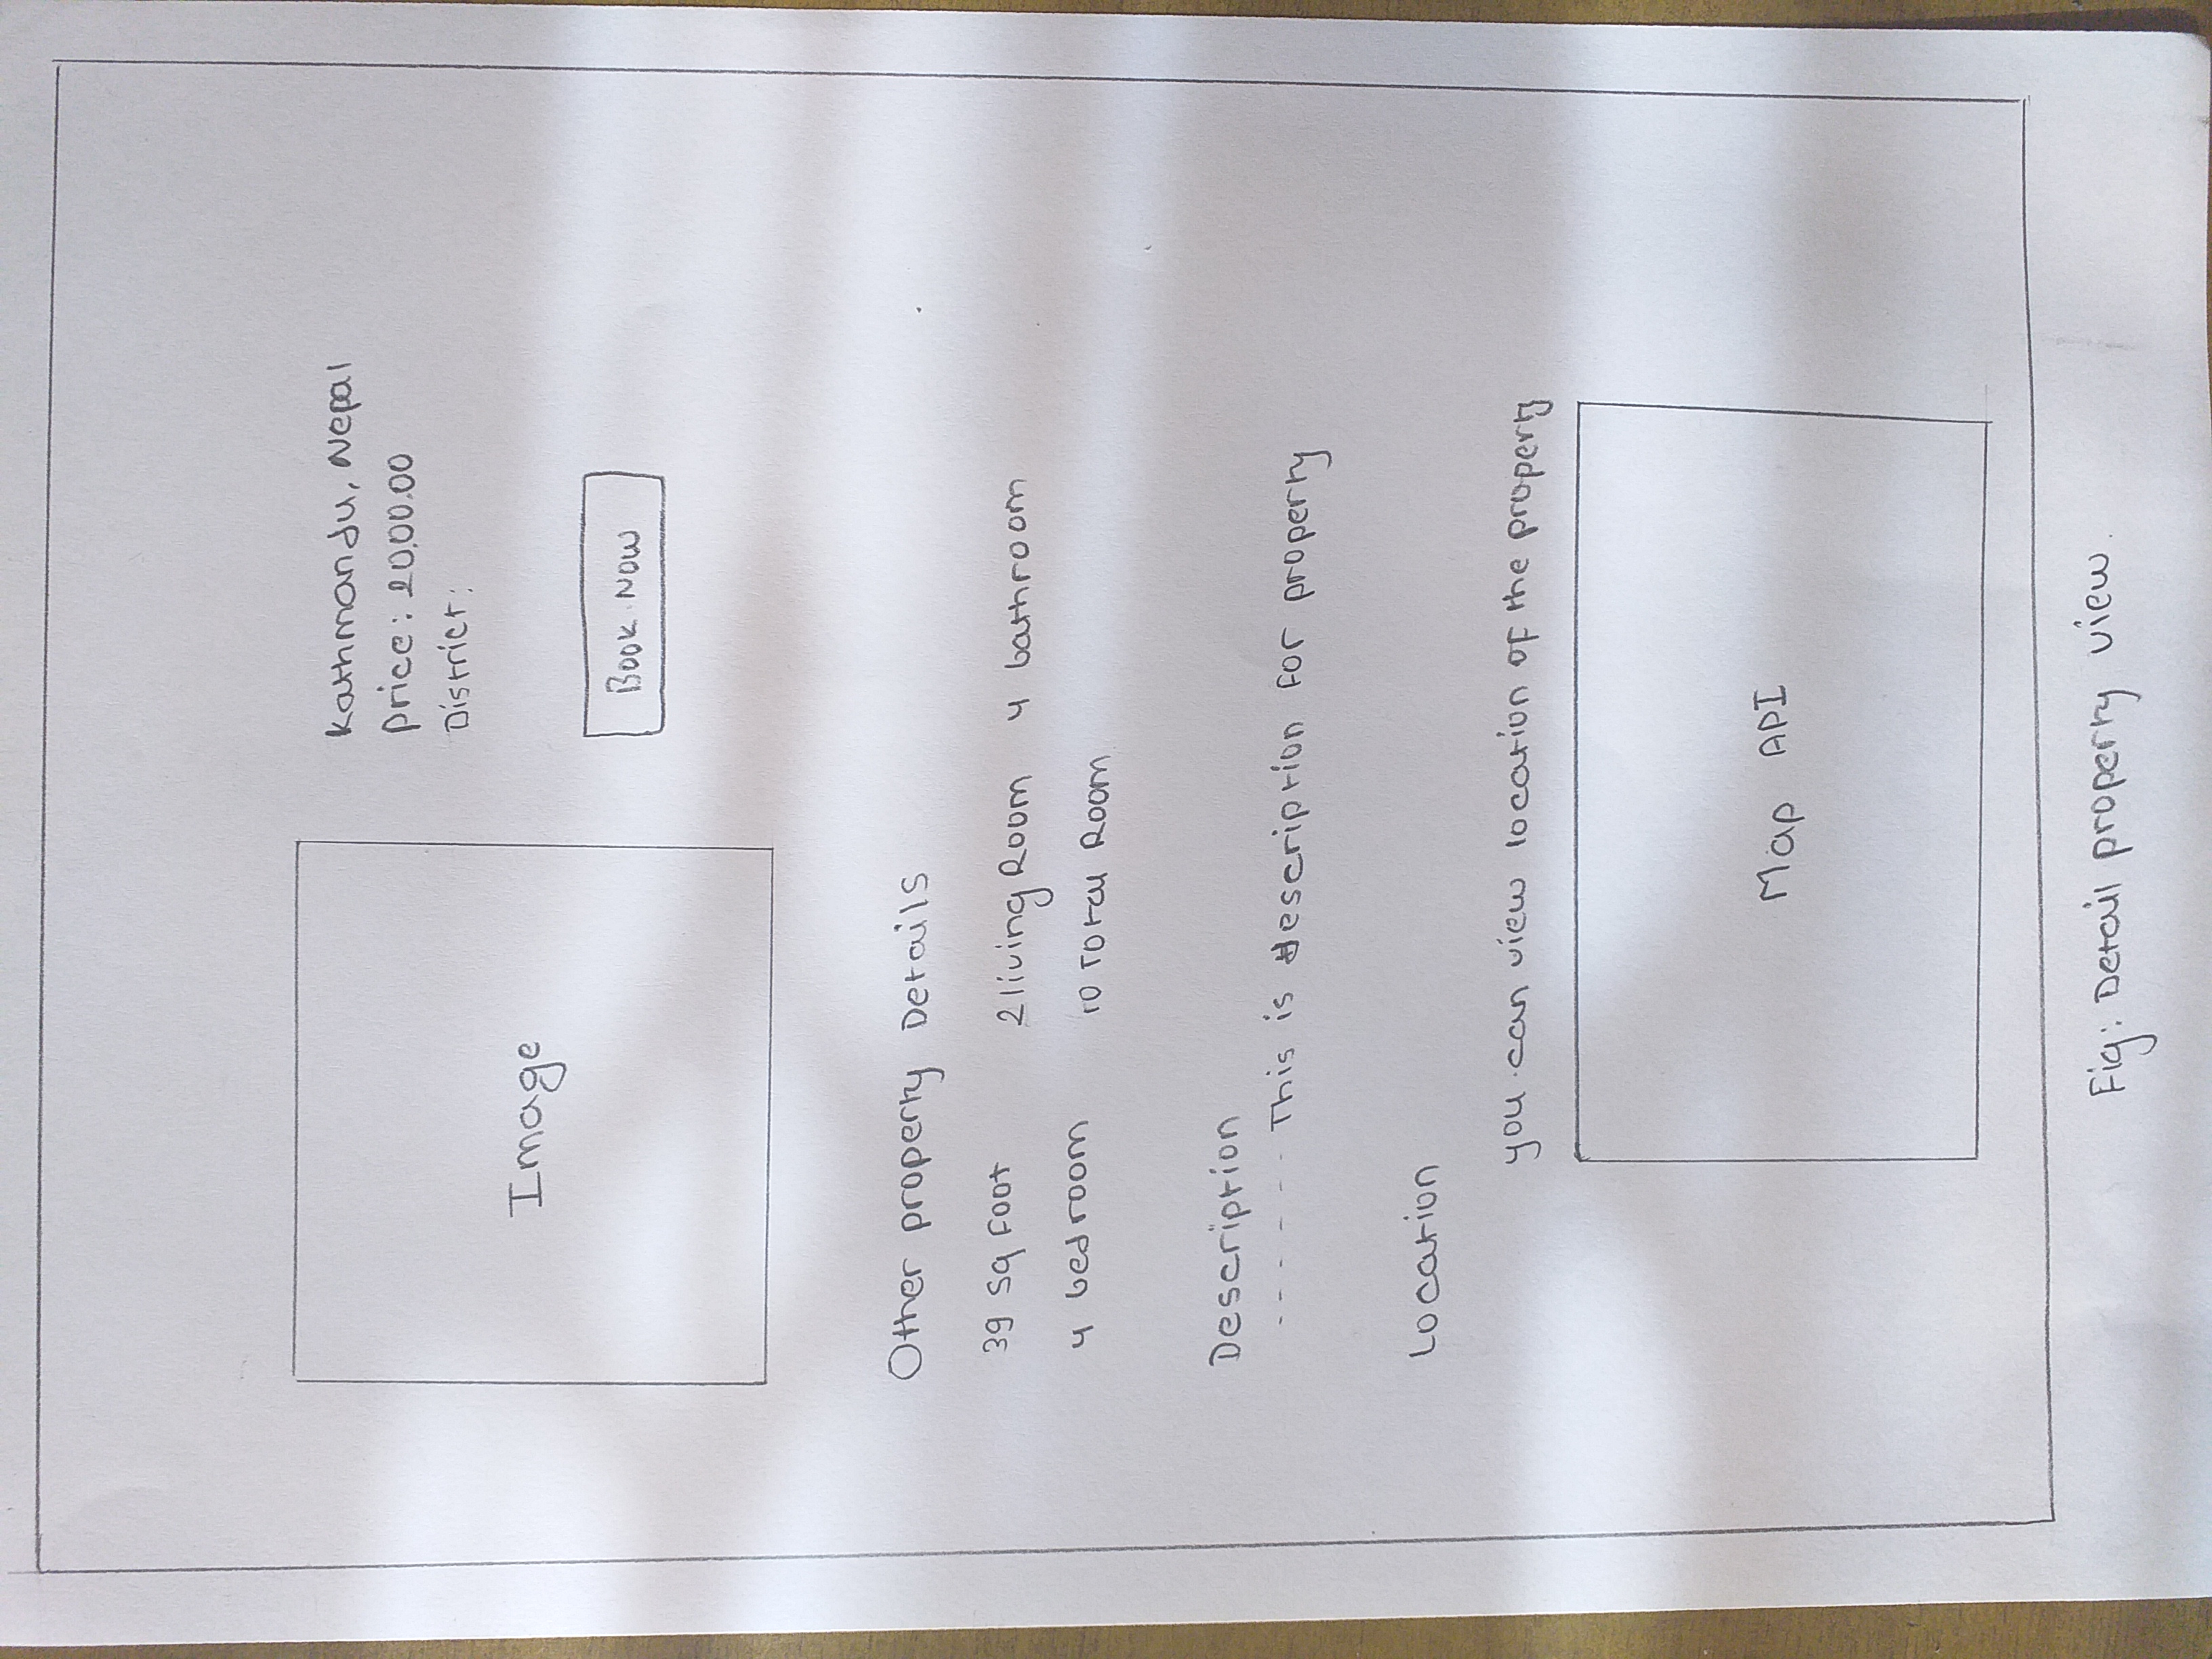 Kathmandu, Nepal
Price: 20,00.00
District:
Image
Book Now
Other property Details
39 Sq Foot 2 living Room 4 bathroom
4 bedroom 10 Total Room
Description
- - - - - - This is description for property
Location
you can view location of the property
Map API
Fig: Detail property view.